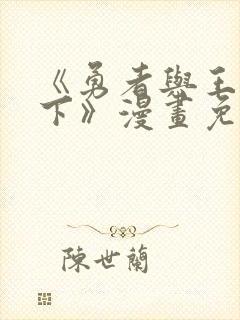 《勇者與王
下》漫畫免
陳世蘭